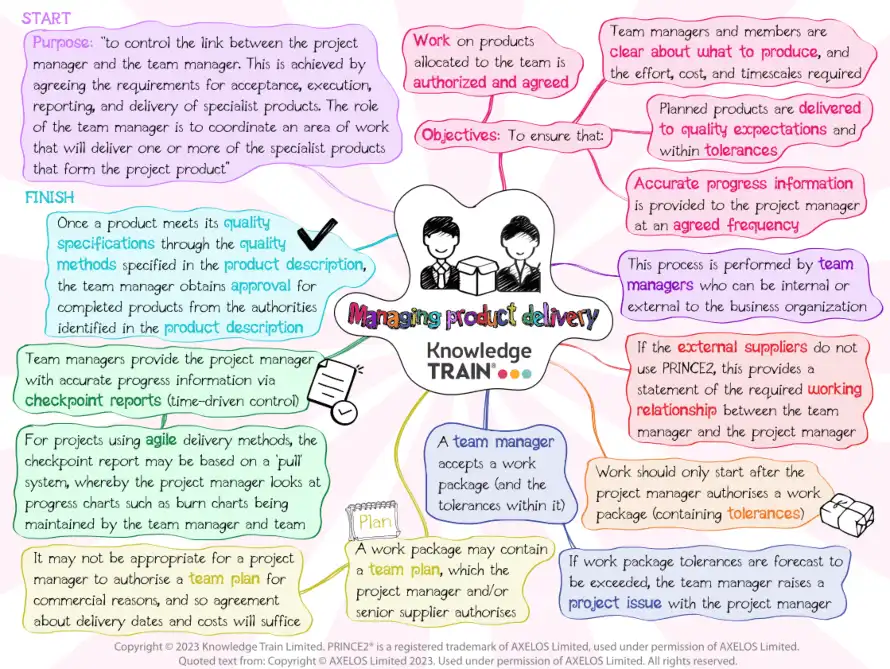 START
Purpose: "to control the link between the project
manager and the team manager. This is achieved by
agreeing the requirements for acceptance, execution,
reporting, and delivery of specialist products. The role
of the team manager is to coordinate an area of work
that will deliver one or more of the specialist products
that form the project product"
Work on products
allocated to the team is
authorized and agreed
Objectives: To ensure that:
Team managers and members are
clear about what to produce, and
the effort, cost, and timescales required
Planned products are delivered
to quality expectations and
within tolerances
Accurate progress information
is provided to the project manager
at an agreed frequency
This process is performed by team
managers who can be internal or
external to the business organization
If the external suppliers do not
use PRINCE2, this provides a
statement of the required working
relationship between the team
manager and the project manager
Work should only start after the
project manager authorises a work
package (containing tolerances)
Managing product delivery
Knowledge
TRAIN®
A team manager
accepts a work
package (and the
tolerances within it)
If work package tolerances are forecast to
be exceeded, the team manager raises a
project issue with the project manager
Plan
A work package may contain
a team plan, which the
project manager and/or
senior supplier authorises
It may not be appropriate for a project
manager to authorise a team plan for
commercial reasons, and so agreement
about delivery dates and costs will suffice
Team managers provide the project manager
with accurate progress information via
checkpoint reports (time-driven control)
For projects using agile delivery methods, the
checkpoint report may be based on a 'pull'
system, whereby the project manager looks at
progress charts such as burn charts being
maintained by the team manager and team
FINISH
Once a product meets its quality
specifications through the quality
methods specified in the product description,
the team manager obtains approval for
completed products from the authorities
identified in the product description
Copyright © 2023 Knowledge Train Limited. PRINCE2® is a registered trademark of AXELOS Limited, used under permission of AXELOS Limited.
Quoted text from: Copyright © AXELOS Limited 2023. Used under permission of AXELOS Limited. All rights reserved.